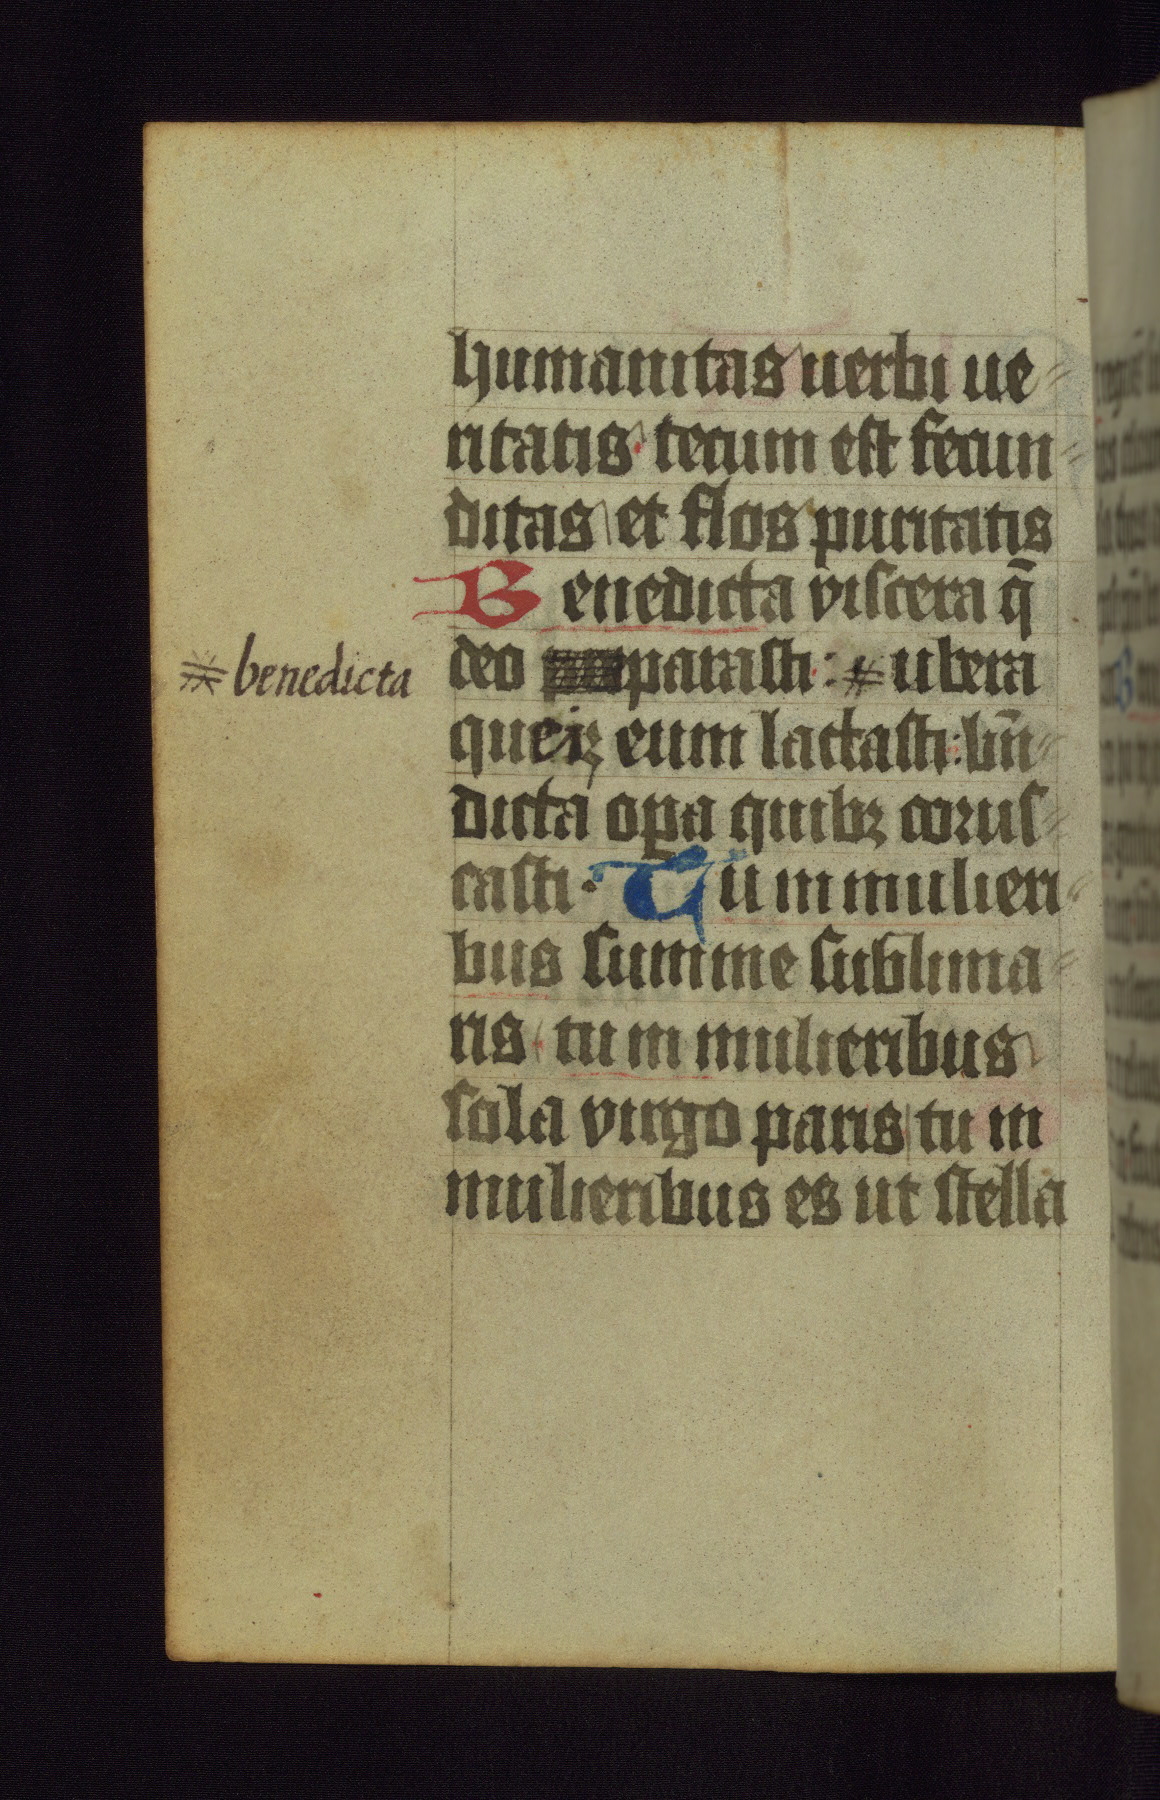 humanitas uerbi ue
ritatis· tecum est fecun
ditas et flos puritatis
Benedicta viscera q̄
benedicta
deo parasti: ubera
quei eum lactasti: bn̄
dicta oꝑa quibꝫ corus
casti· Tu in mulieri
bus summe sublima
ris tu in mulieribus
sola virgo paris tu in
mulieribus es ut stella